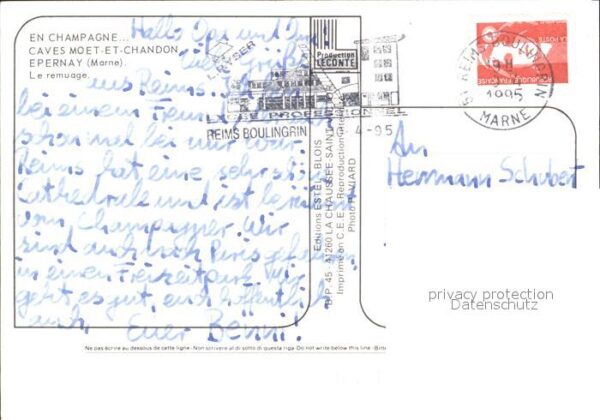 EN CHAMPAGNE...
CAVES MOET-ET-CHANDON
EPERNAY (Marne).
Le remuage.
Hallo Opa und
Viele Grüße
aus Reims.
bei einem
schon mal bei mir war
Reims hat eine sehr schöne
Cathedrale und ist berühmt
vom Champagner. Wir
sind auch nach Paris gefahren
in einen Freizeitpark. Mir
geht es gut, euch hoffentlich
auch. Euer Benni!
Production
LECONTE
LYCEE PROFESSIONNEL
REIMS BOULINGRIN
4-95
51 REIMS BOULINGRIN
1995
MARNE
LA POSTE
REPUBLIQUE FRANÇAISE
Editions ESTEL - BLOIS
B.P. 45 - 41260 LA CHAUSSEE-SAINT-VICTOR
Imprimé en C.E.E. - Reproduction interdite
Photo
An
Herrmann Schubert
privacy protection
Datenschutz
Ne pas écrire au dessous de cette ligne - Non scrivere al di sotto di questa riga - Do not write below this line -